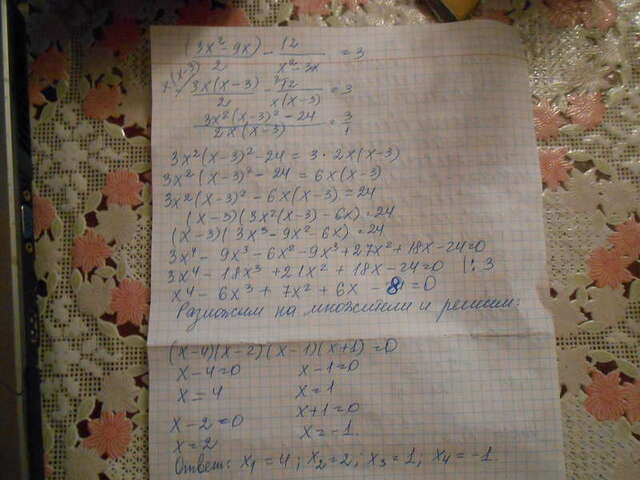 (3x² - 9x)/2 - 12/(x² - 3x) = 3
x(x-3)/ 3x(x-3)/2 - ²/12/(x(x-3)) = 3
(3x²(x-3)² - 24)/(2x(x-3)) = 3/1
3x²(x-3)² - 24 = 3 · 2x(x-3)
3x²(x-3)² - 24 = 6x(x-3)
3x²(x-3)² - 6x(x-3) = 24
(x-3)(3x²(x-3) - 6x) = 24
(x-3)(3x³ - 9x² - 6x) = 24
3x⁴ - 9x³ - 6x² - 9x³ + 27x² + 18x - 24 = 0
3x⁴ - 18x³ + 21x² + 18x - 24 = 0 |: 3
x⁴ - 6x³ + 7x² + 6x - 8 = 0
Разложим на множители и решим:
(x-4)(x-2)(x-1)(x+1) = 0
x-4=0 x-1=0
x=4 x=1
x-2=0 x+1=0
x=2 x=-1.
Ответ: x₁ = 4; x₂ = 2; x₃ = 1; x₄ = -1.